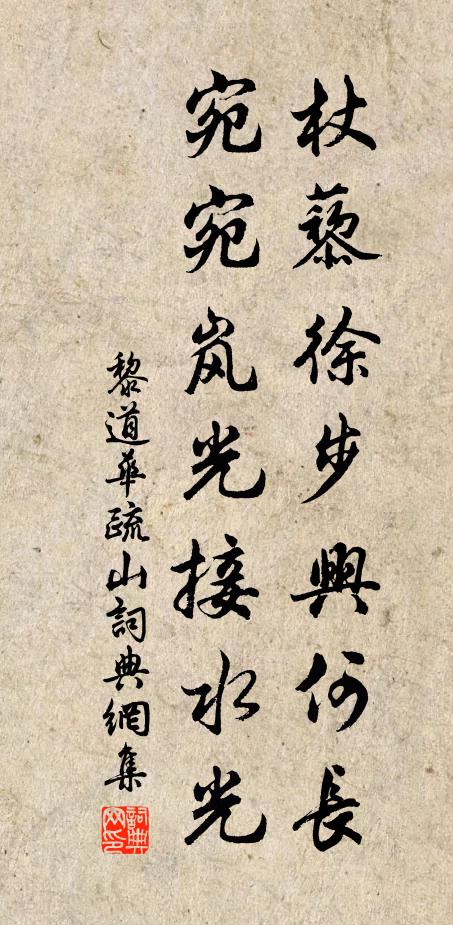 杖藜徐步興何長
宛宛岚光接水光
黎道華疏山詞典網集
詞典网印